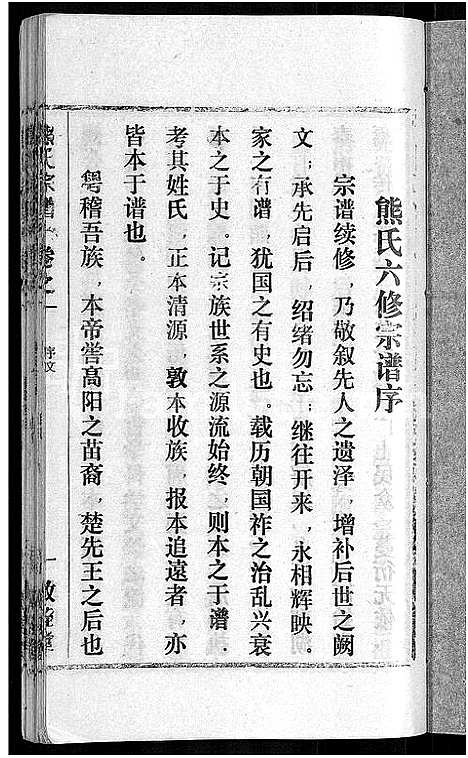 熊氏六修宗谱序
宗谱续修，乃敬叙先人之遗泽，增补后世之阙
文；承先启后，绍绪勿忘；继往开来，永相辉映。
家之有谱，犹国之有史也。载历朝国祚之治乱兴衰
本之于史。记宗族世系之源流始终，则本之于谱．
考其姓氏，正本清源，敦本收族，报本追远者，亦
皆本于谱也。
粤稽吾族，本帝喾高阳之苗裔，楚先王之后也
熊氏宗谱
卷之一
序文
一